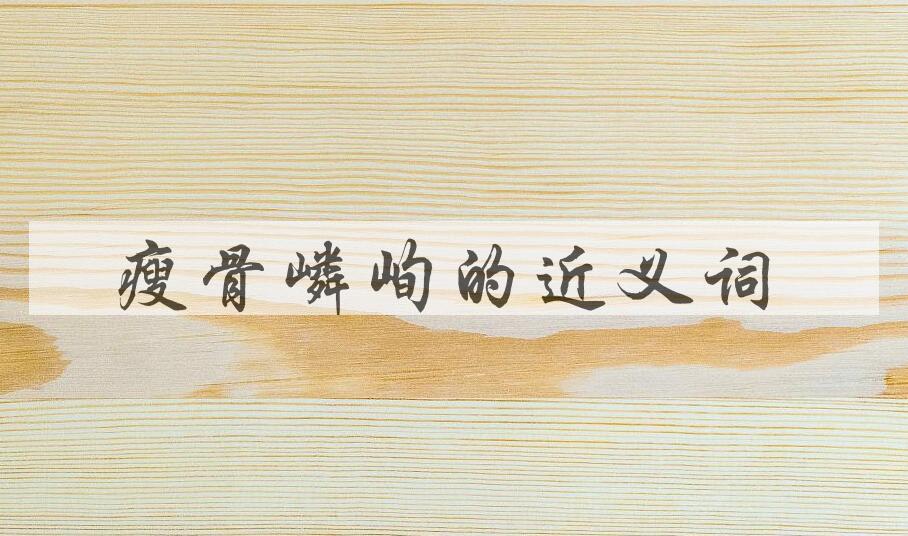 瘦骨嶙峋的近义词